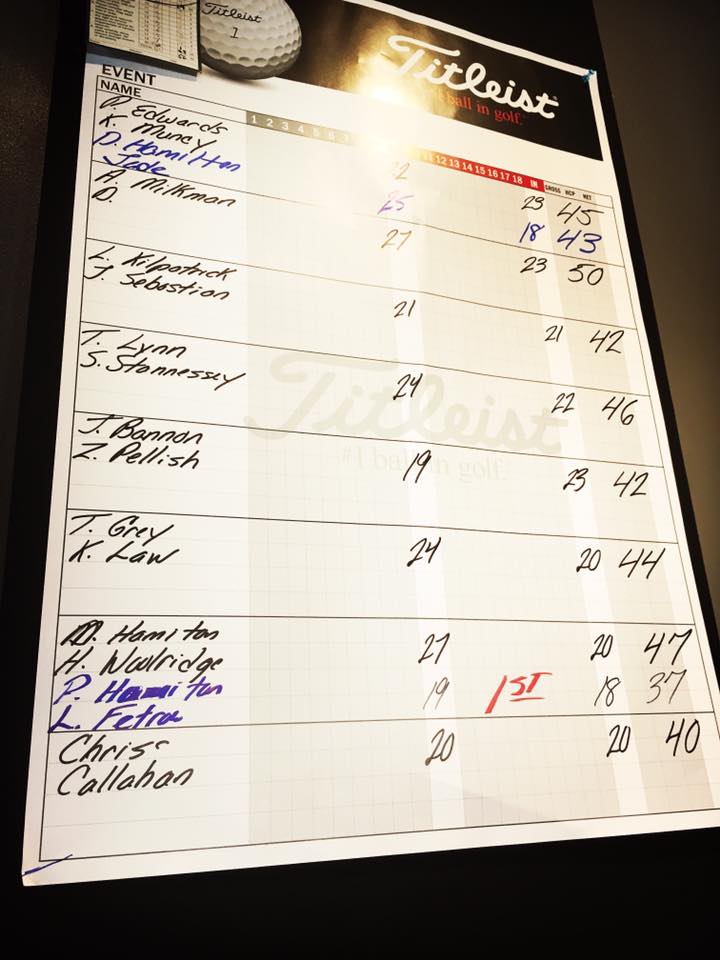 Titleist
1
Titleist
ball in golf.
EVENT
NAME
1 2 3 4 5 6 12 13 14 15 16 17 18 IN GROSS HCP NET
D. Edwards
K. Muncy 22 23 45
D. Hamilton
Jade 25 18 43
A. Milkman 27 23 50
D.
L. Kilpatrick
J. Sebastian 21 21 42
T. Lynn
S. Stannessey 24 22 46
Titleist
#1 ball in golf.
J. Bannon
Z. Pellish 19 23 42
T. Grey
K. Law 24 20 44
D. Hamiton
H. Woolridge 27 20 47
P. Hamiton 19 1ST 18 37
L. Fetrow
Chriss 20 20 40
Callahan